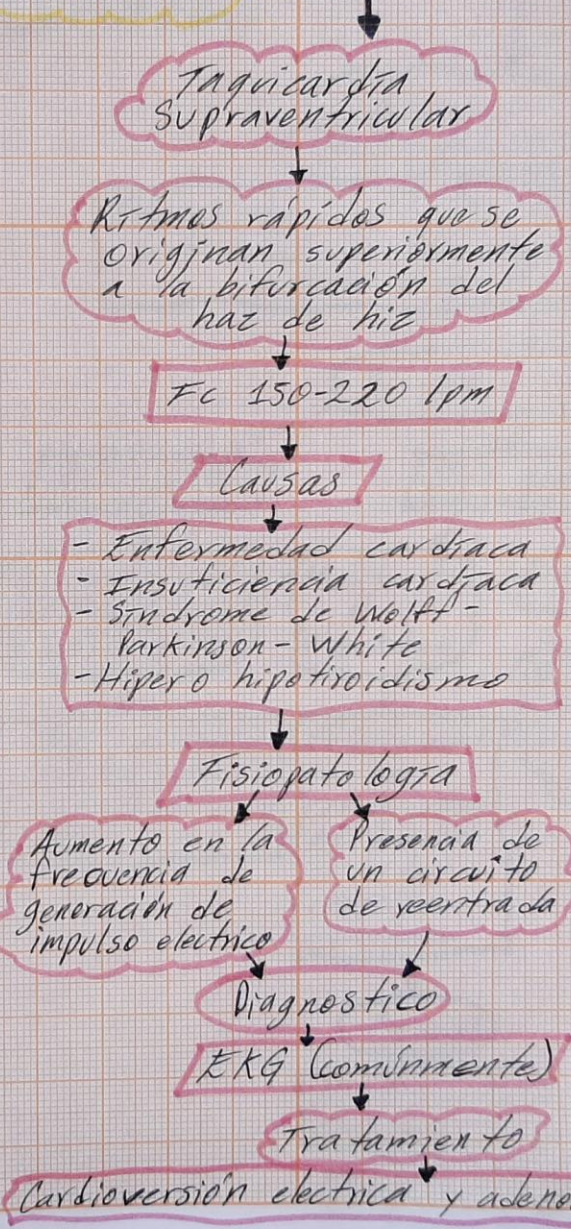 Taquicardía
Supraventricular
Ritmos rápidos que se
originan superiormente
a la bifurcación del
haz de hiz
Fc 150-220 lpm
Causas
- Enfermedad cardíaca
- Insuficiencia cardíaca
- Síndrome de Wolff-
Parkinson-White
- Hiper o hipotiroidismo
Fisiopatología
Aumento en la
frecuencia de
generación de
impulso electrico
Presencia de
un circuito
de reentrada
Diagnostico
EKG (comúnmente)
Tratamiento
Cardioversión electrica y adeno